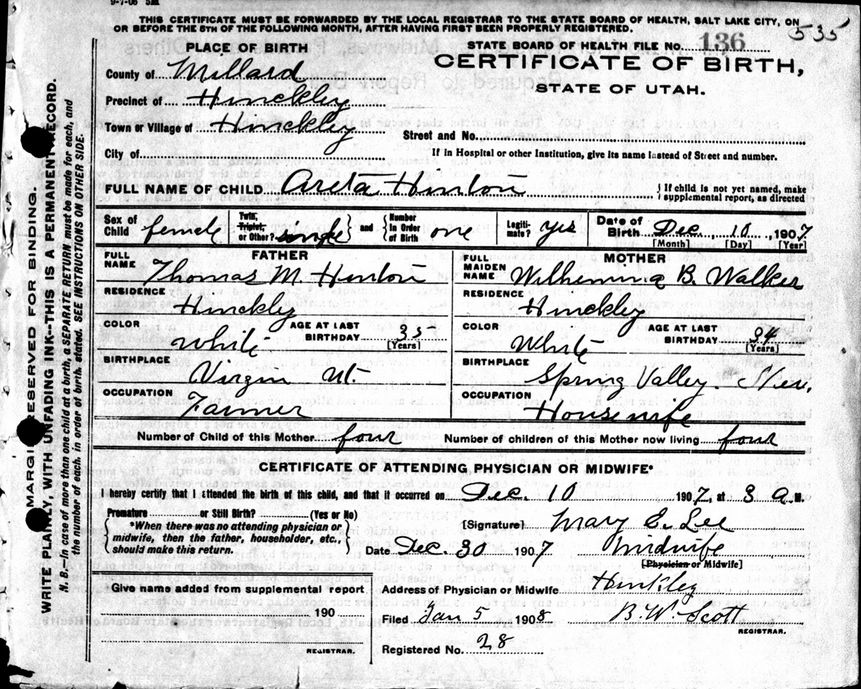 9-7-06 5M
THIS CERTIFICATE MUST BE FORWARDED BY THE LOCAL REGISTRAR TO THE STATE BOARD OF HEALTH, SALT LAKE CITY, ON
OR BEFORE THE 5TH OF THE FOLLOWING MONTH, AFTER HAVING FIRST BEEN PROPERLY REGISTERED.
535
PLACE OF BIRTH
STATE BOARD OF HEALTH FILE No. 136
County of Millard
CERTIFICATE OF BIRTH,
STATE OF UTAH.
Precinct of Hinckley
Town or Village of Hinckley
Street and No.
City of
If in Hospital or other Institution, give its name instead of Street and number.
FULL NAME OF CHILD Areta Hinton
If child is not yet named, make supplemental report, as directed
Sex of Child female
Twin, Triplet, or Other? single
and Number in Order of Birth one
Legitimate? yes
Date of Birth Dec. 10, 1907
[Month] [Day] [Year]
FATHER
FULL NAME Thomas M. Hinton
RESIDENCE Hinckley
COLOR White
AGE AT LAST BIRTHDAY 35 [Years]
BIRTHPLACE Virgin Ut.
OCCUPATION Farmer
MOTHER
FULL MAIDEN NAME Wilhemina B. Walker
RESIDENCE Hinckley
COLOR White
AGE AT LAST BIRTHDAY 34 [Years]
BIRTHPLACE Spring Valley.
OCCUPATION Housewife
Number of Child of this Mother four
Number of children of this Mother now living four
CERTIFICATE OF ATTENDING PHYSICIAN OR MIDWIFE*
I hereby certify that I attended the birth of this child, and that it occurred on Dec. 10 1907, at 3 a.M.
Premature or Still Birth? (Yes or No)
*When there was no attending physician or midwife, then the father, householder, etc., should make this return.
[Signature] Mary E. Lee
Date Dec. 30 1907
Midwife
[Physician or Midwife]
Give name added from supplemental report
190
REGISTRAR.
Address of Physician or Midwife Hinkley
Filed Jan 5 1908
B. W. Scott
REGISTRAR.
Registered No. 28
MARGIN RESERVED FOR BINDING.
WRITE PLAINLY, WITH UNFADING INK--THIS IS A PERMANENT RECORD.
N. B.—In case of more than one child at a birth, a SEPARATE RETURN must be made for each, and
the number of each, in order of birth, stated. SEE INSTRUCTIONS ON OTHER SIDE.